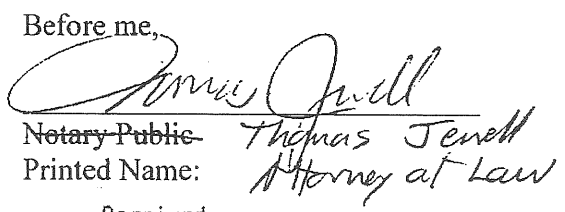 Before me,
Thomas Jewell
Notary Public Thomas Jewell
Printed Name: Attorney at Law